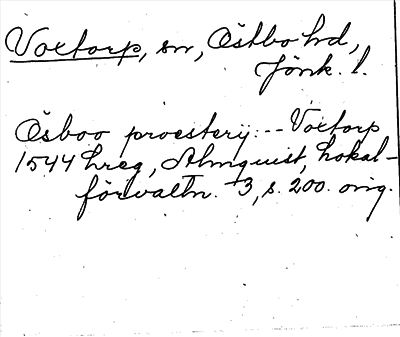 Voxtorp, sn, Östbo hd,
Jönk. l.
Ösboo proesterij: -- Voxtorp
1544 hreg, Almquist, Lokal-
förvaltn. 3, s. 200. orig.